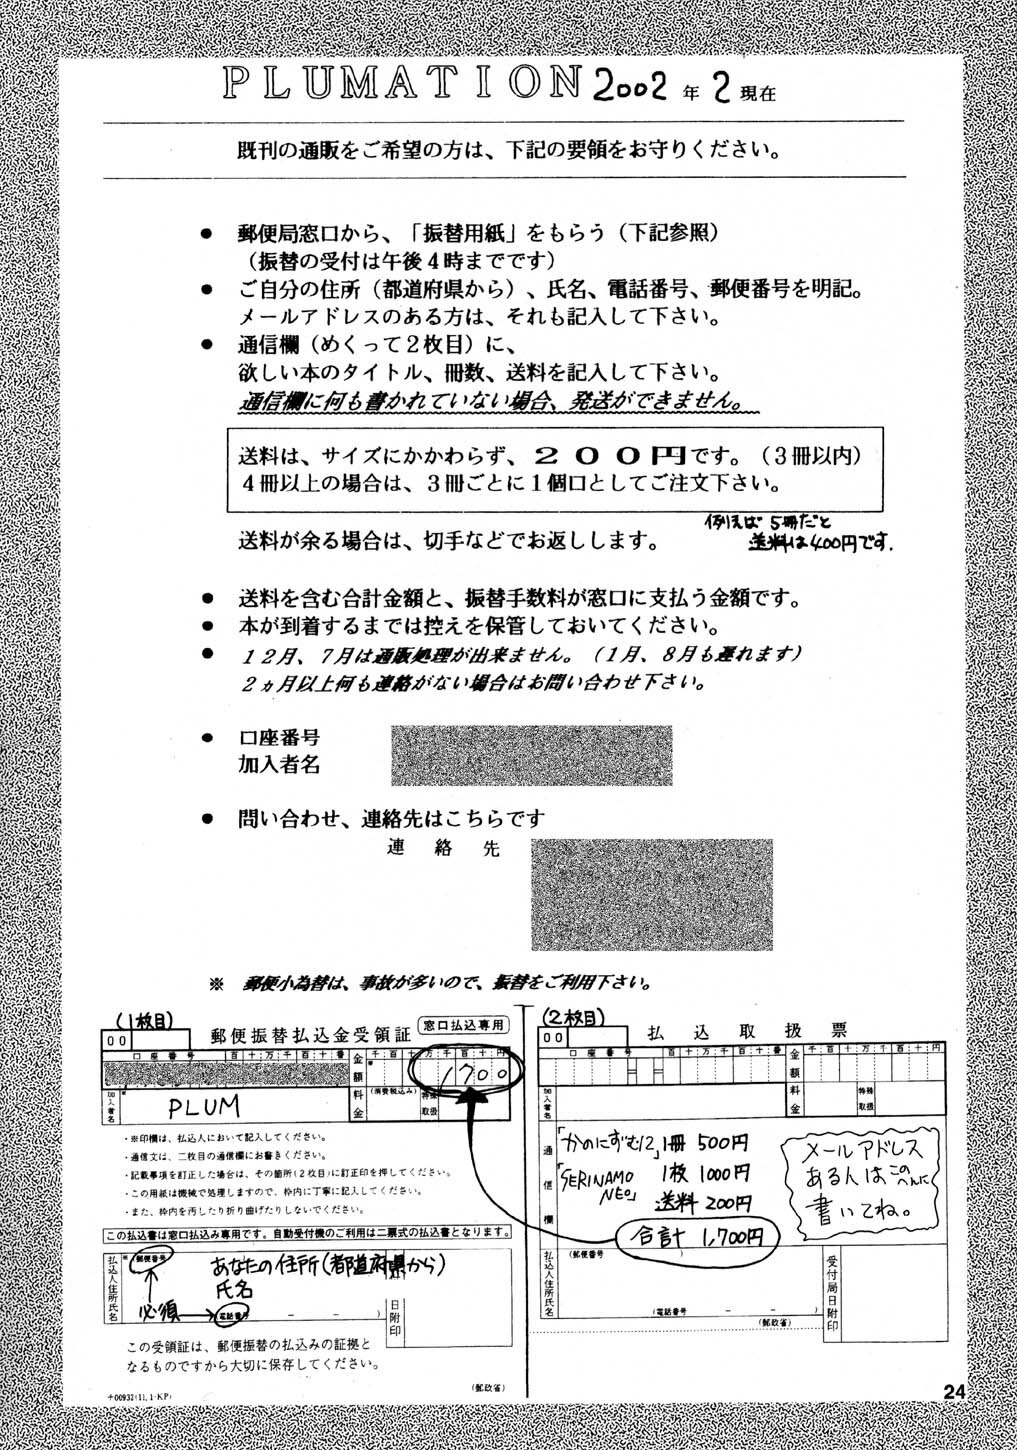 PLUMATION 2002年2現在
既刊の通販をご希望の方は、下記の要領をお守りください。
● 郵便局窓口から、「振替用紙」をもらう（下記参照）
（振替の受付は午後４時までです）
● ご自分の住所（都道府県から）、氏名、電話番号、郵便番号を明記。
メールアドレスのある方は、それも記入して下さい。
● 通信欄（めくって２枚目）に、
欲しい本のタイトル、冊数、送料を記入して下さい。
通信欄に何も書かれていない場合、発送ができません。
送料は、サイズにかかわらず、２００円です。（３冊以内）
４冊以上の場合は、３冊ごとに１個口としてご注文下さい。
例えば5冊だと
送料は400円です.
送料が余る場合は、切手などでお返しします。
● 送料を含む合計金額と、振替手数料が窓口に支払う金額です。
● 本が到着するまでは控えを保管しておいてください。
● １２月、７月は通販処理が出来ません。（１月、８月も遅れます）
２ヵ月以上何も連絡がない場合はお問い合わせ下さい。
● 口座番号
加入者名
● 問い合わせ、連絡先はこちらです
連絡先
※ 郵便小為替は、事故が多いので、振替をご利用下さい。
(1枚目)
00
郵便振替払込金受領証
窓口払込専用
口座番号 百十万千百十番
金額
千百十万千百十円
1700
加入者名
PLUM
料金
(消費税込み)
特殊取扱
・※印欄は、払込人において記入してください。
・通信文は、二枚目の通信欄にお書きください。
・記載事項を訂正した場合は、その箇所(２枚目)に訂正印を押してください。
・この用紙は機械で処理しますので、枠内に丁寧に記入してください。
・また、枠内を汚したり折り曲げたりしないでください。
この払込書は窓口払込み専用です。自動受付機のご利用は二票式の払込書となります。
払込人住所氏名
※(郵便番号)
あなたの住所(都道府県から)
氏名
必須
(電話番号 － － )
日附印
この受領証は、郵便振替の払込みの証拠と
なるものですから大切に保存してください。
(郵政省)
(2枚目)
00
払込取扱票
口座番号 百十万千百十番
金額
千百十万千百十円
加入者名
料金
特殊取扱
通信欄
「かのにずむ12」1冊 500円
「SERINAMO NEO」 1枚 1000円
送料 200円
合計 1,700円
メールアドレス
ある人はこのへんに
書いてね。
払込人住所氏名
(郵便番号 )
(電話番号 － － )
(郵政省)
受付局日附印
24